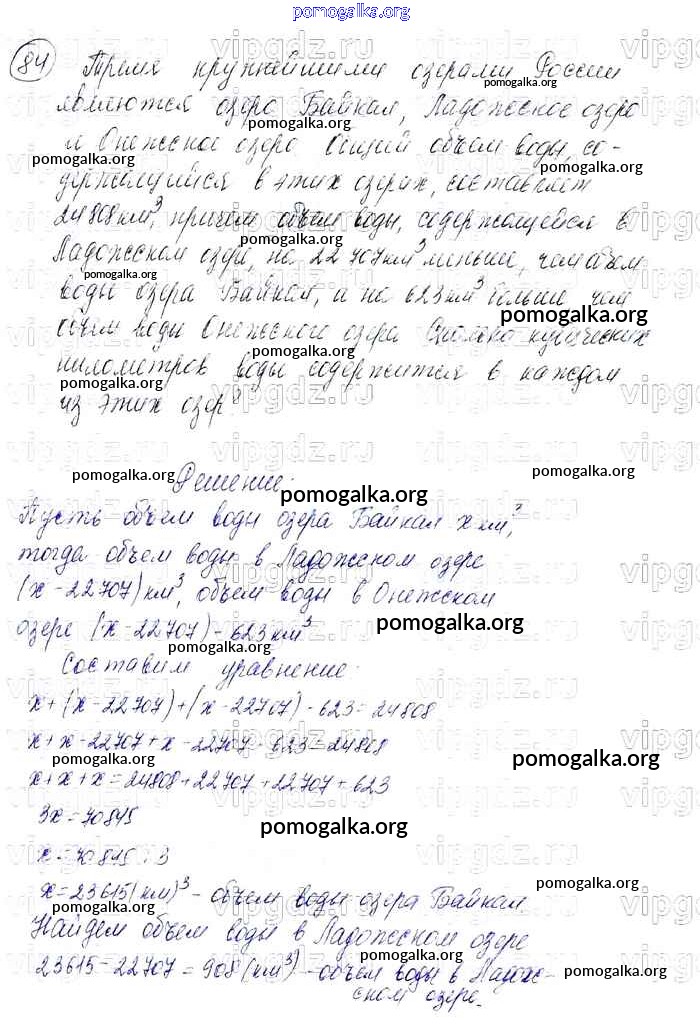 pomogalka.org
84 Тремя крупнейшими озерами России
являются озеро Байкал, Ладожское озеро
и Онежское озеро Общий объем воды, со-
держащийся в этих озерах, составляет
24808 км³, причем объем воды, содержащейся в
Ладожском озере, на 22 707 км³ меньше, чем объем
воды озера Байкал, а на 623 км³ больше чем
объем воды Онежского озера Сколько кубических
километров воды содержится в каждом
из этих озер?
Решение:
Пусть объем воды озера Байкал x км³,
тогда объем воды в Ладожском озере
(x-22707) км³, объем воды в Онежском
озере (x-22707)-623 км³
Составим уравнение:
x+(x-22707)+(x-22707)-623=24808
x+x-22707+x-22707-623=24808
x+x+x=24808+22707+22707+623
3x=70845
x=70845:3
x=23615(км)³ - объем воды озера Байкал
Найдем объем воды в Ладожском озере
23615-22707=908(км³)-объем воды в Ладож-
ском озере.